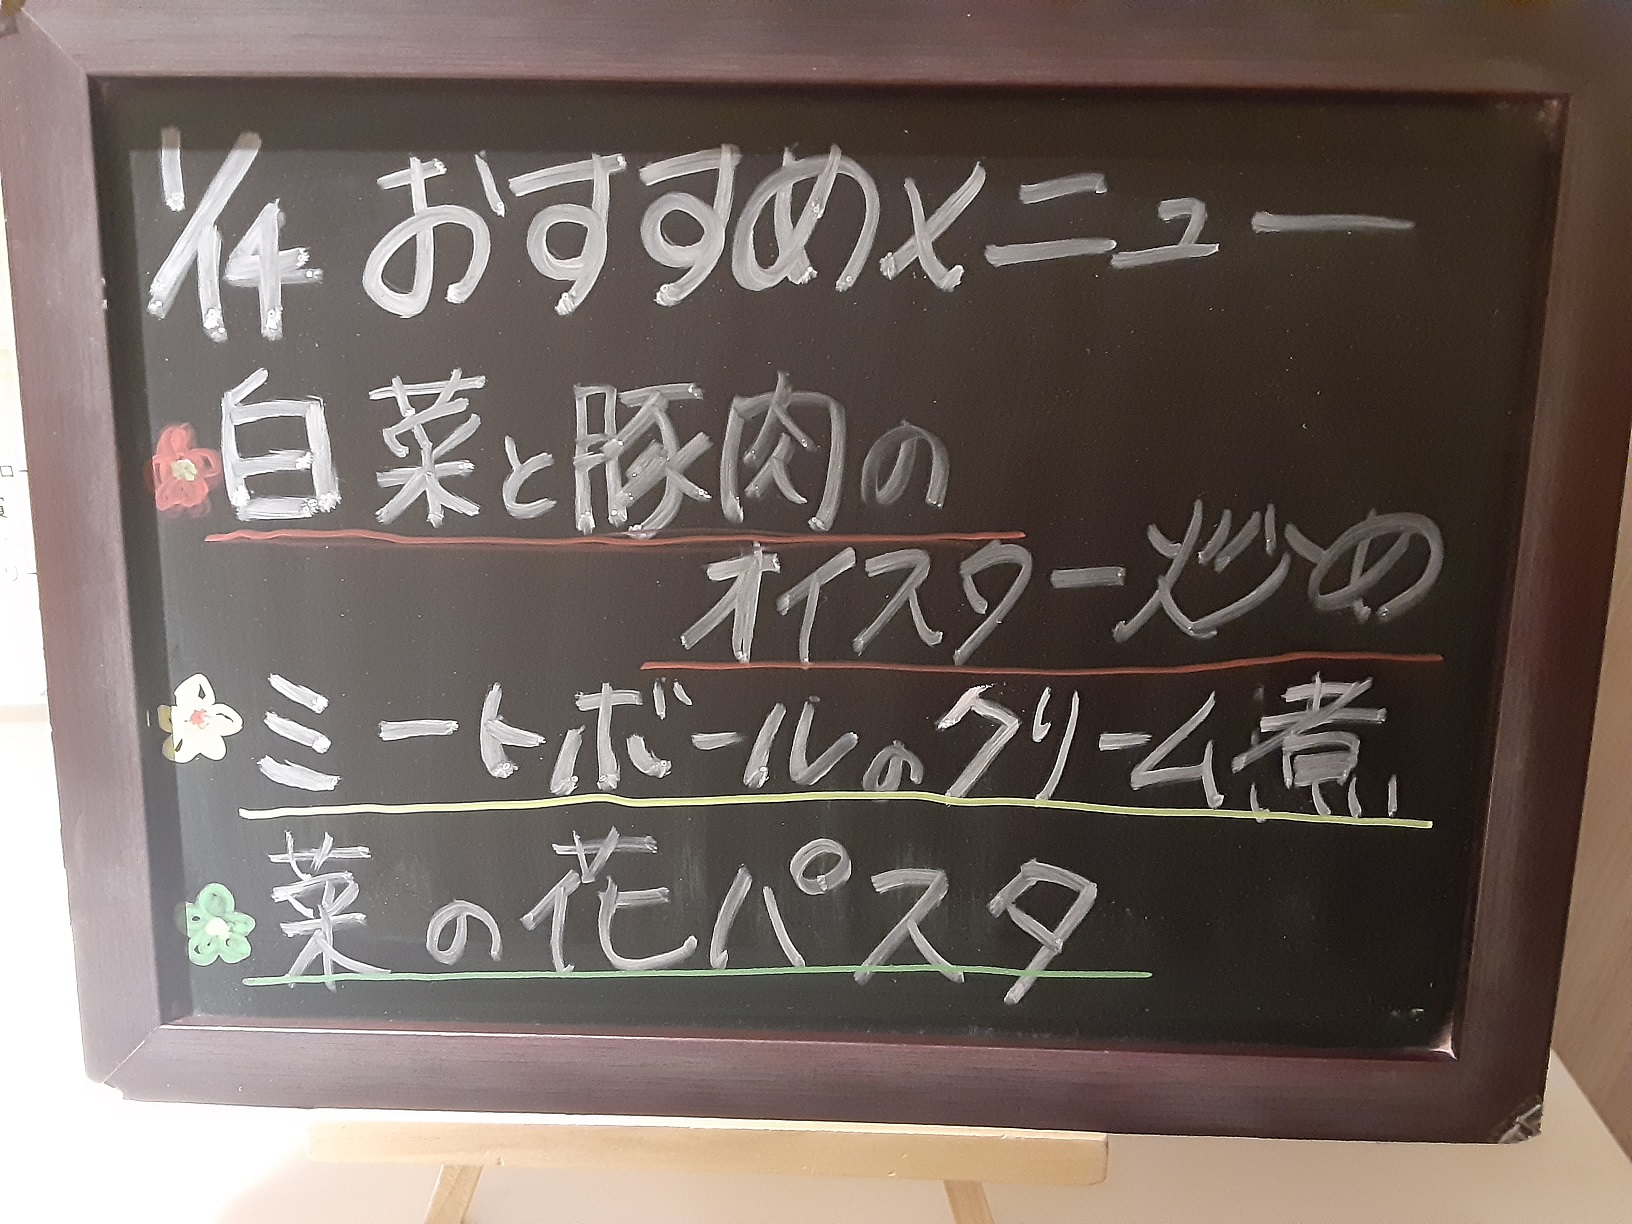 1/14 おすすめメニュー
白菜と豚肉の
オイスター炒め
ミートボールのクリーム煮
菜の花パスタ